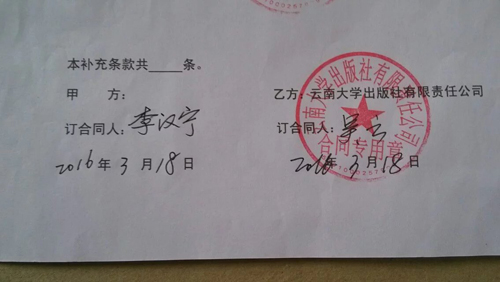 本补充条款共_____条。
甲 方：
订合同人：李汉宁
2016年3月18日
乙方：云南大学出版社有限责任公司
订合同人：吴云
2016年3月18日
云南大学出版社有限责任公司
合同专用章